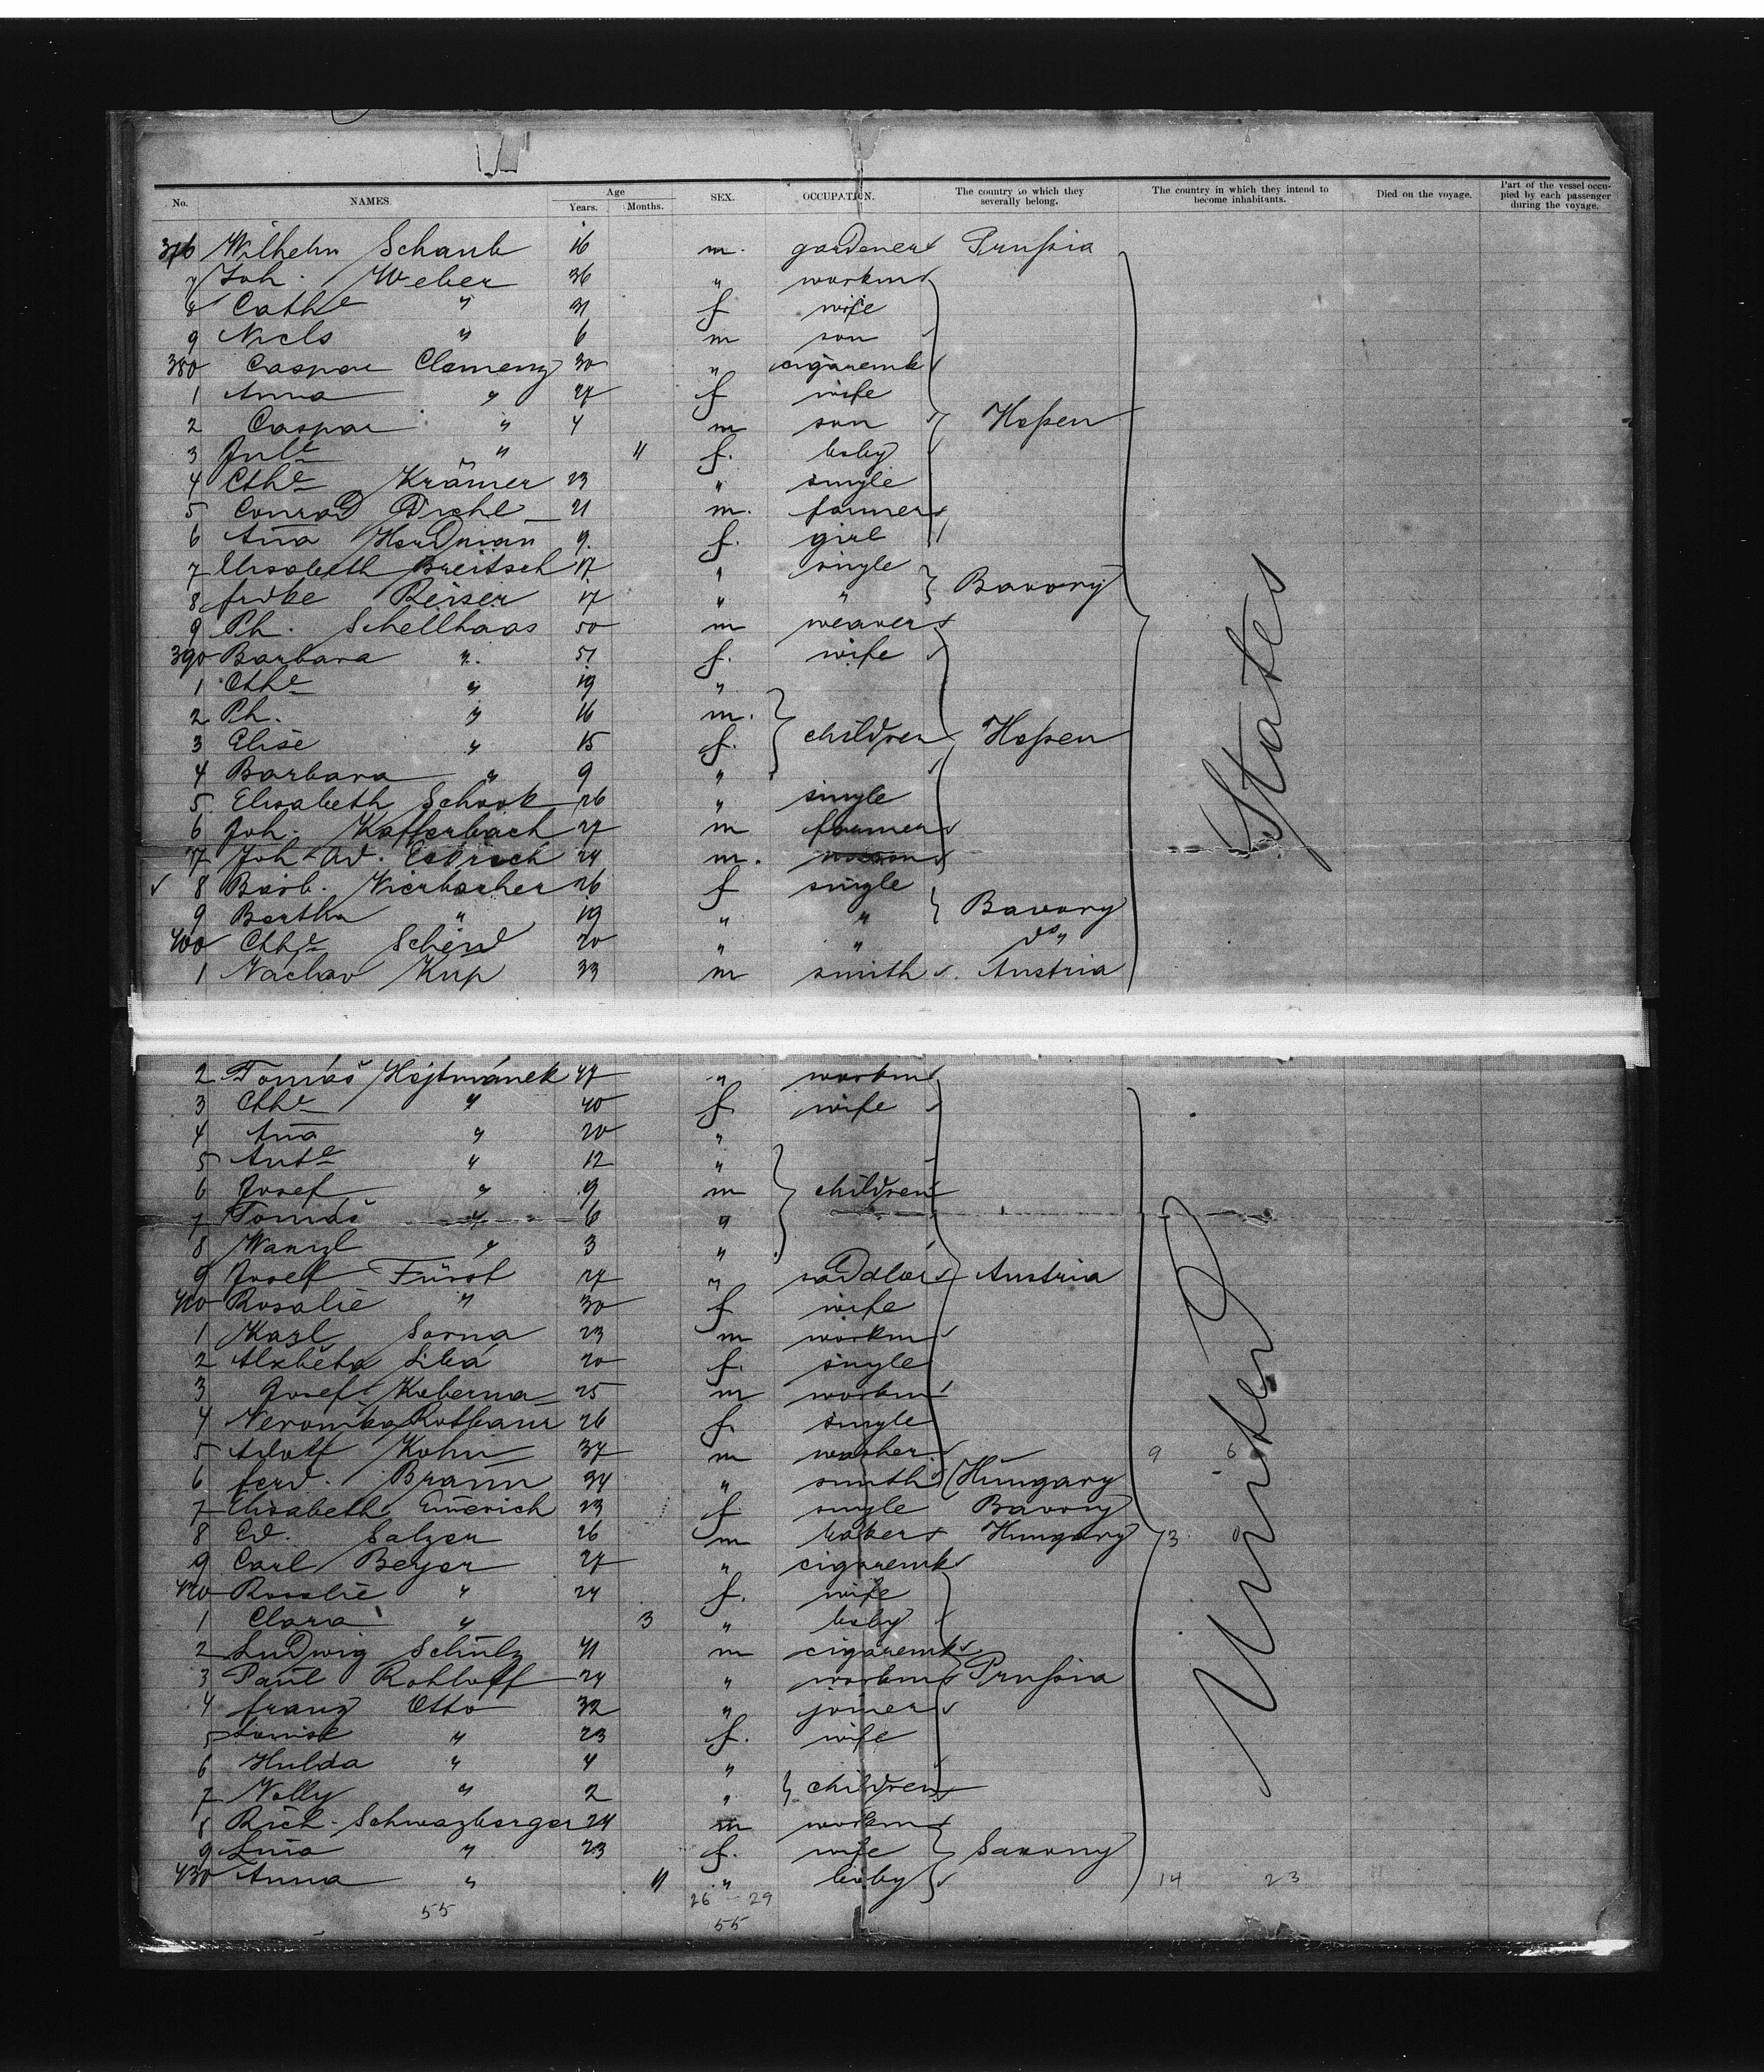 No. NAMES. Age Years. Months. SEX. OCCUPATION. The country to which they severally belong. The country in which they intend to become inhabitants. Died on the voyage. Part of the vessel occupied by each passenger during the voyage.
376 Wilhelm Schaub 16 m. gardener Prußia
7 Joh. Weber 36 " workm
8 Cathe " 31 f wife
9 Niels " 6 m son
380 Caspar Clemenz 30 " cigaremk
1 Anna " 27 f wife
2 Caspar " 4 m son Heßen
3 Jule " 11 f. baby
4 Cthe Krämer 23 " single
5 Conrad Diehl 21 m. farmer
6 Ana 9. f. girl
7 Elisabeth Breitsch 17 " single
8 Frdke Reiser 17 " " Bavory
9 Ph. Schellhaas 50 m weaver
390 Barbara " 51 f. wife
1 Cthe " 19 "
2 Ph. " 16 m.
3 Elise " 15 f. children Heßen
4 Barbara " 9 "
5 Elisabeth Schook 26 " single
6 Joh. Kafferbach 27 m farmer
7 Joh Ad. 24 m.
8 Barb. Nierbacher 26 f single
9 Bertha " 19 " " Bavory
400 Cthe 20 " " do "
1 Vaclav Kup 33 m smith Austria
States
2 Tomáš Hejtmánek 47 " workm
3 Cthe " 40 f wife
4 Ana " 20 "
5 Ante " 12 "
6 Josef " 9 m children
7 Tomáš " 6 "
8 " 3 "
9 Josef Fürst 27 " saddler Austria
410 Rosalie " 30 f wife
1 Karl Sorna 23 m workm
2 Alzběta Libá 20 f. single
3 Josef Koberna 25 m workm
4 26 f. single
5 Adolf Kohn 34 m 9 6
6 Ferd. Braun 34 " smith Hungary
7 Elisabeth Emerich 23 f single Bavory
8 Ed. Salzer 26 m baker Hungary 13 0
9 Carl Beyer 27 " cigaremk
420 Rosalie " 24 f. wife
1 Clara " 3 " baby
2 Ludwig Schulz 41 m cigaremk
3 Paul Rohloff 24 " workm Prußia
4 Franz Otto 32 " joiner
5 Louise " 23 f. wife
6 Hulda " 4 "
7 Nelly " 2 " children
8 Rich. Schwazberger 24 m workm
9 Lina " 23 f. wife Saxony
430 Anna " 11 " baby 14 23
United
55 26 - 29
55